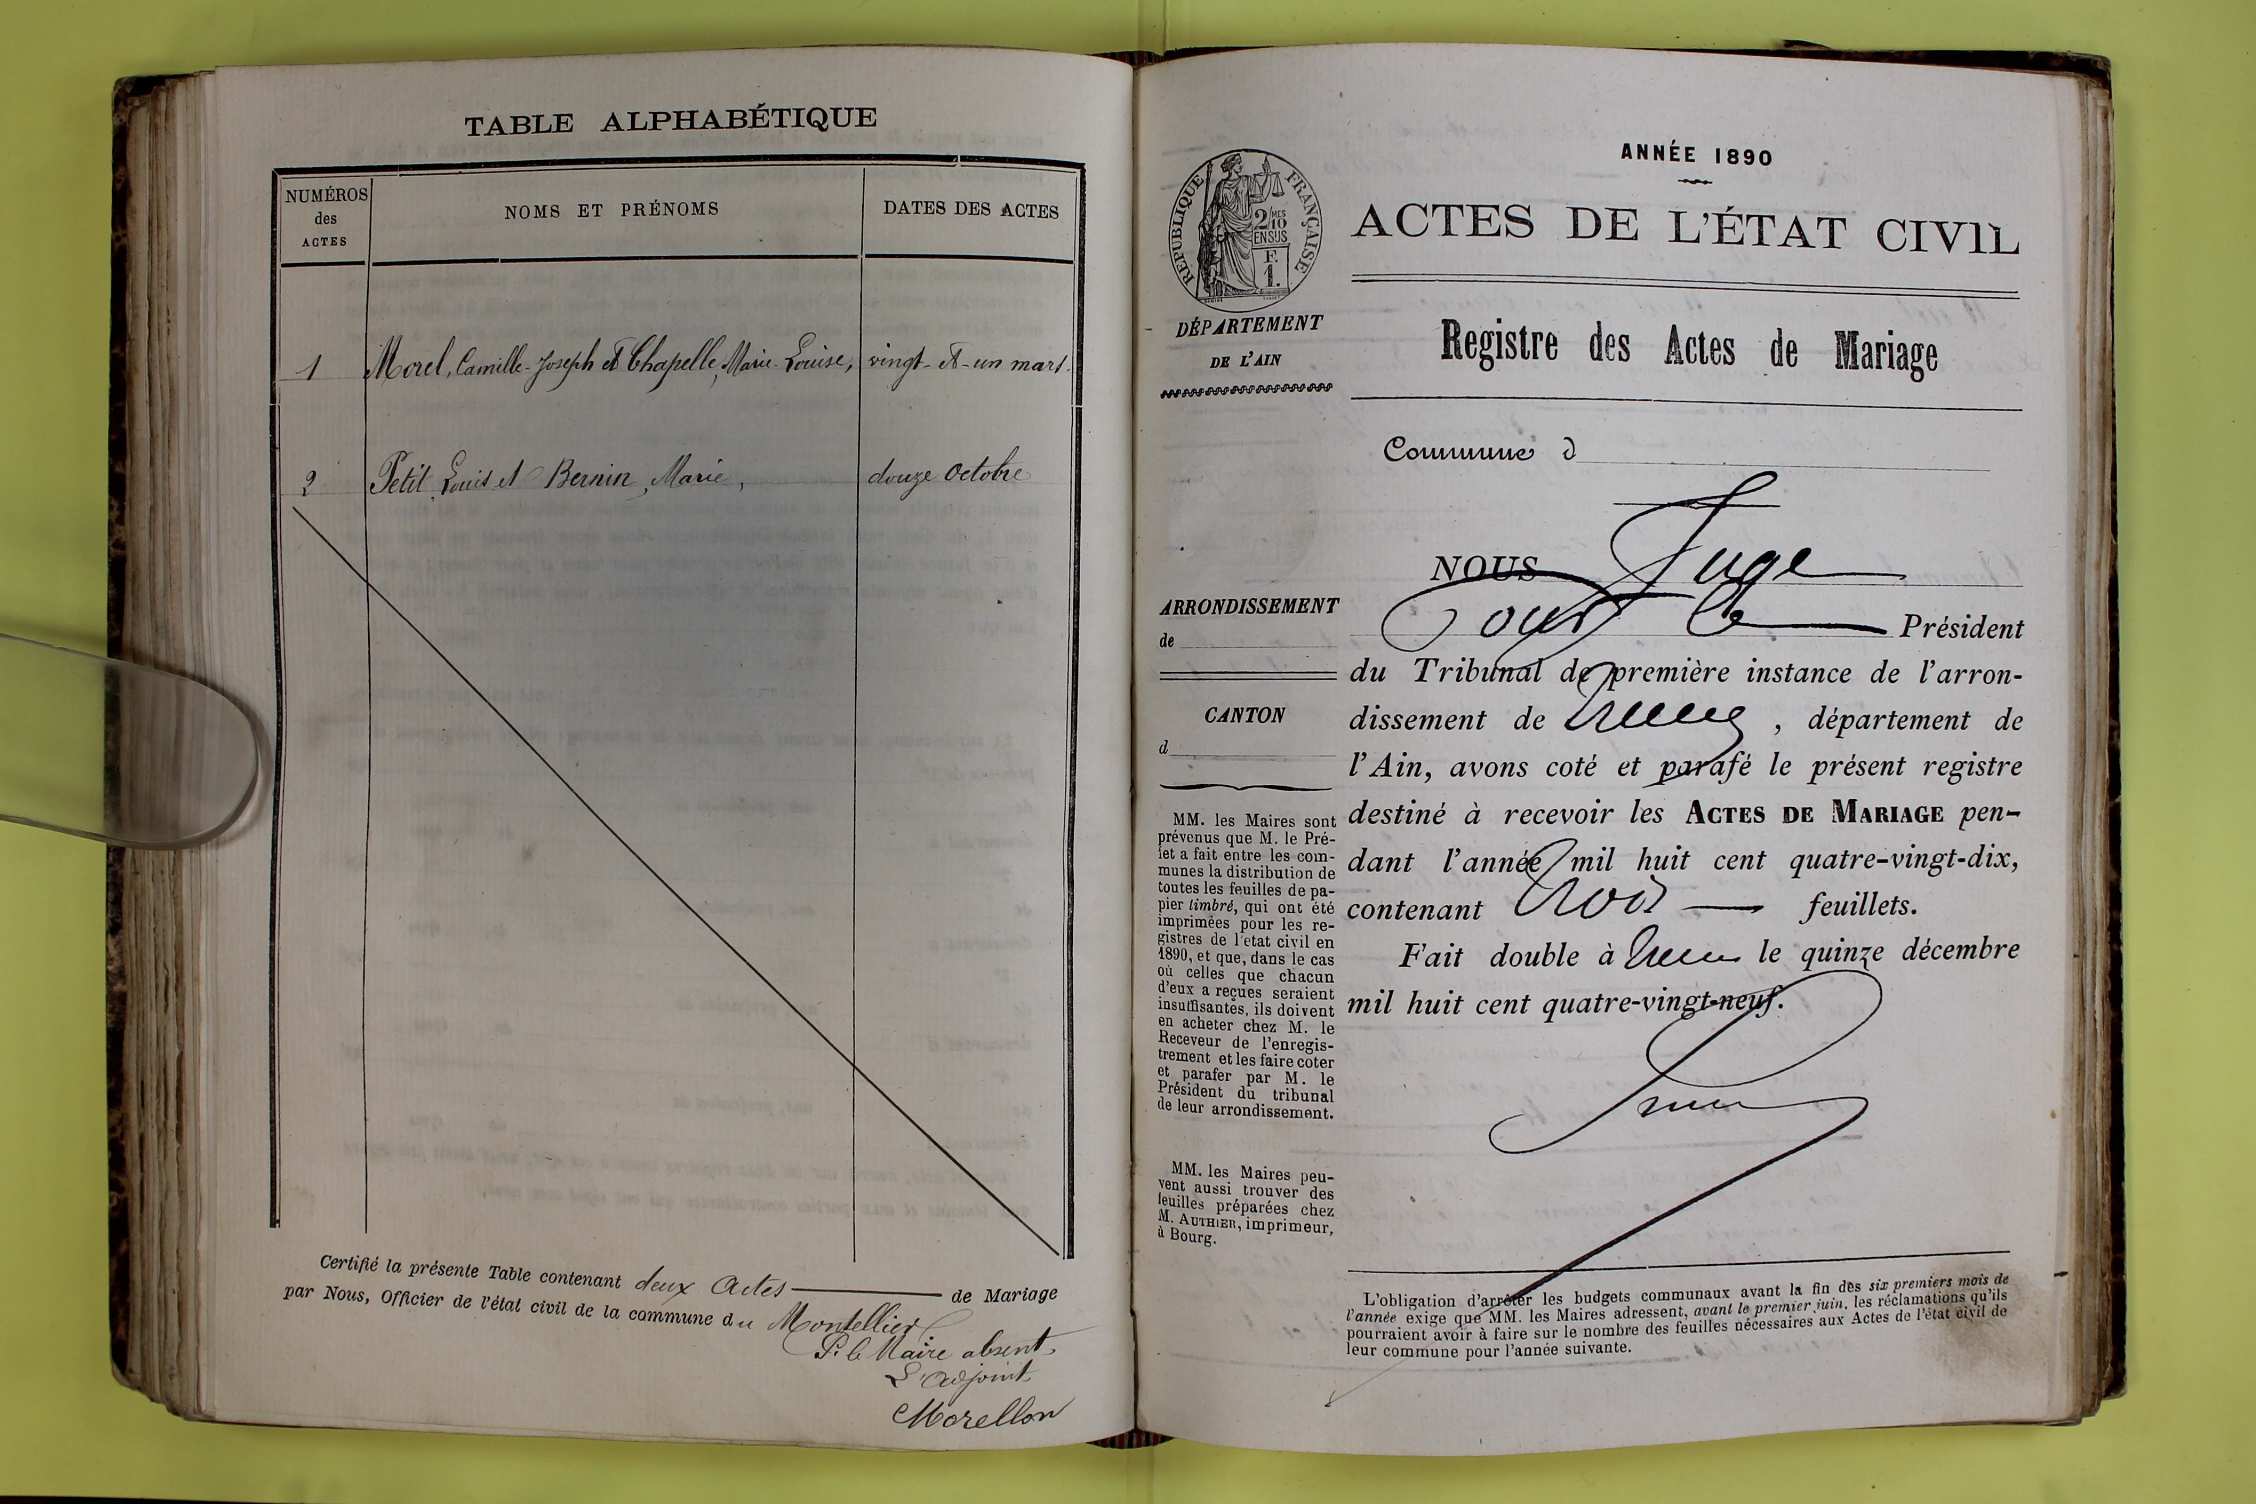 TABLE ALPHABÉTIQUE
NUMÉROS
des
ACTES
NOMS ET PRÉNOMS
DATES DES ACTES
1 Morel, Camille-Joseph et Chapelle, Marie-Louise, vingt-et-un mars.
2 Petit, Louis et Bernin, Marie, douze Octobre
Certifié la présente Table contenant deux Actes de Mariage
par Nous, Officier de l'état civil de la commune du Montellier
P. le Maire absent,
L'adjoint
Morellon
ANNÉE 1890
ACTES DE L'ÉTAT CIVIL
Registre des Actes de Mariage
RÉPUBLIQUE FRANÇAISE
2/10 MES
EN SUS
F.
1.
DÉPARTEMENT
DE L'AIN
Commune d
NOUS Juge
ARRONDISSEMENT
de
Président
du Tribunal de première instance de l'arron-
dissement de , département de
l'Ain, avons coté et parafé le présent registre
destiné à recevoir les ACTES DE MARIAGE pen-
dant l'année mil huit cent quatre-vingt-dix,
contenant trois feuillets.
Fait double à le quinze décembre
mil huit cent quatre-vingt-neuf.
CANTON
d
MM. les Maires sont
prévenus que M. le Pré-
fet a fait entre les com-
munes la distribution de
toutes les feuilles de pa-
pier timbré, qui ont été
imprimées pour les re-
gistres de l'état civil en
1890, et que, dans le cas
où celles que chacun
d'eux a reçues seraient
insuffisantes, ils doivent
en acheter chez M. le
Receveur de l'enregis-
trement et les faire coter
et parafer par M. le
Président du tribunal
de leur arrondissement.
MM. les Maires peu-
vent aussi trouver des
feuilles préparées chez
M. AUTHIER, imprimeur,
à Bourg.
L'obligation d'arrêter les budgets communaux avant la fin des six premiers mois de
l'année exige que MM. les Maires adressent, avant le premier juin, les réclamations qu'ils
pourraient avoir à faire sur le nombre des feuilles nécessaires aux Actes de l'état civil de
leur commune pour l'année suivante.